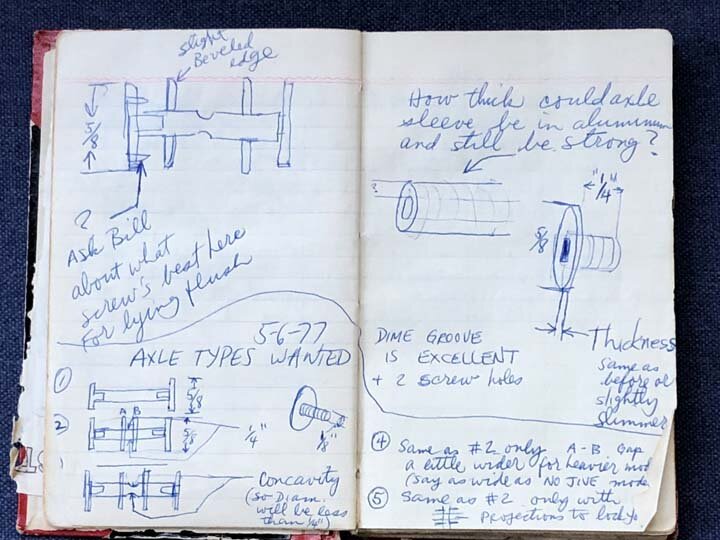 slight
Beveled
edge
5/8
?
Ask Bill
about what
screw's best here
for lying flush
5-6-77
AXLE TYPES WANTED
1
5/8
2
A B
5/8
1/4"
1/8"
Concavity
(so Diam.
will be less
than 1/4")
How thick could axle
sleeve be in aluminum
and still be strong?
?
"1/4"
5/8
DIME GROOVE
IS EXCELLENT
+ 2 screw holes
Thickness
same as
before or
slightly
slimmer
4 Same as #2 only A-B Gap
a little wider for heavier mod
(say as wide as NO JIVE mode
5 Same as #2 only with
projections to